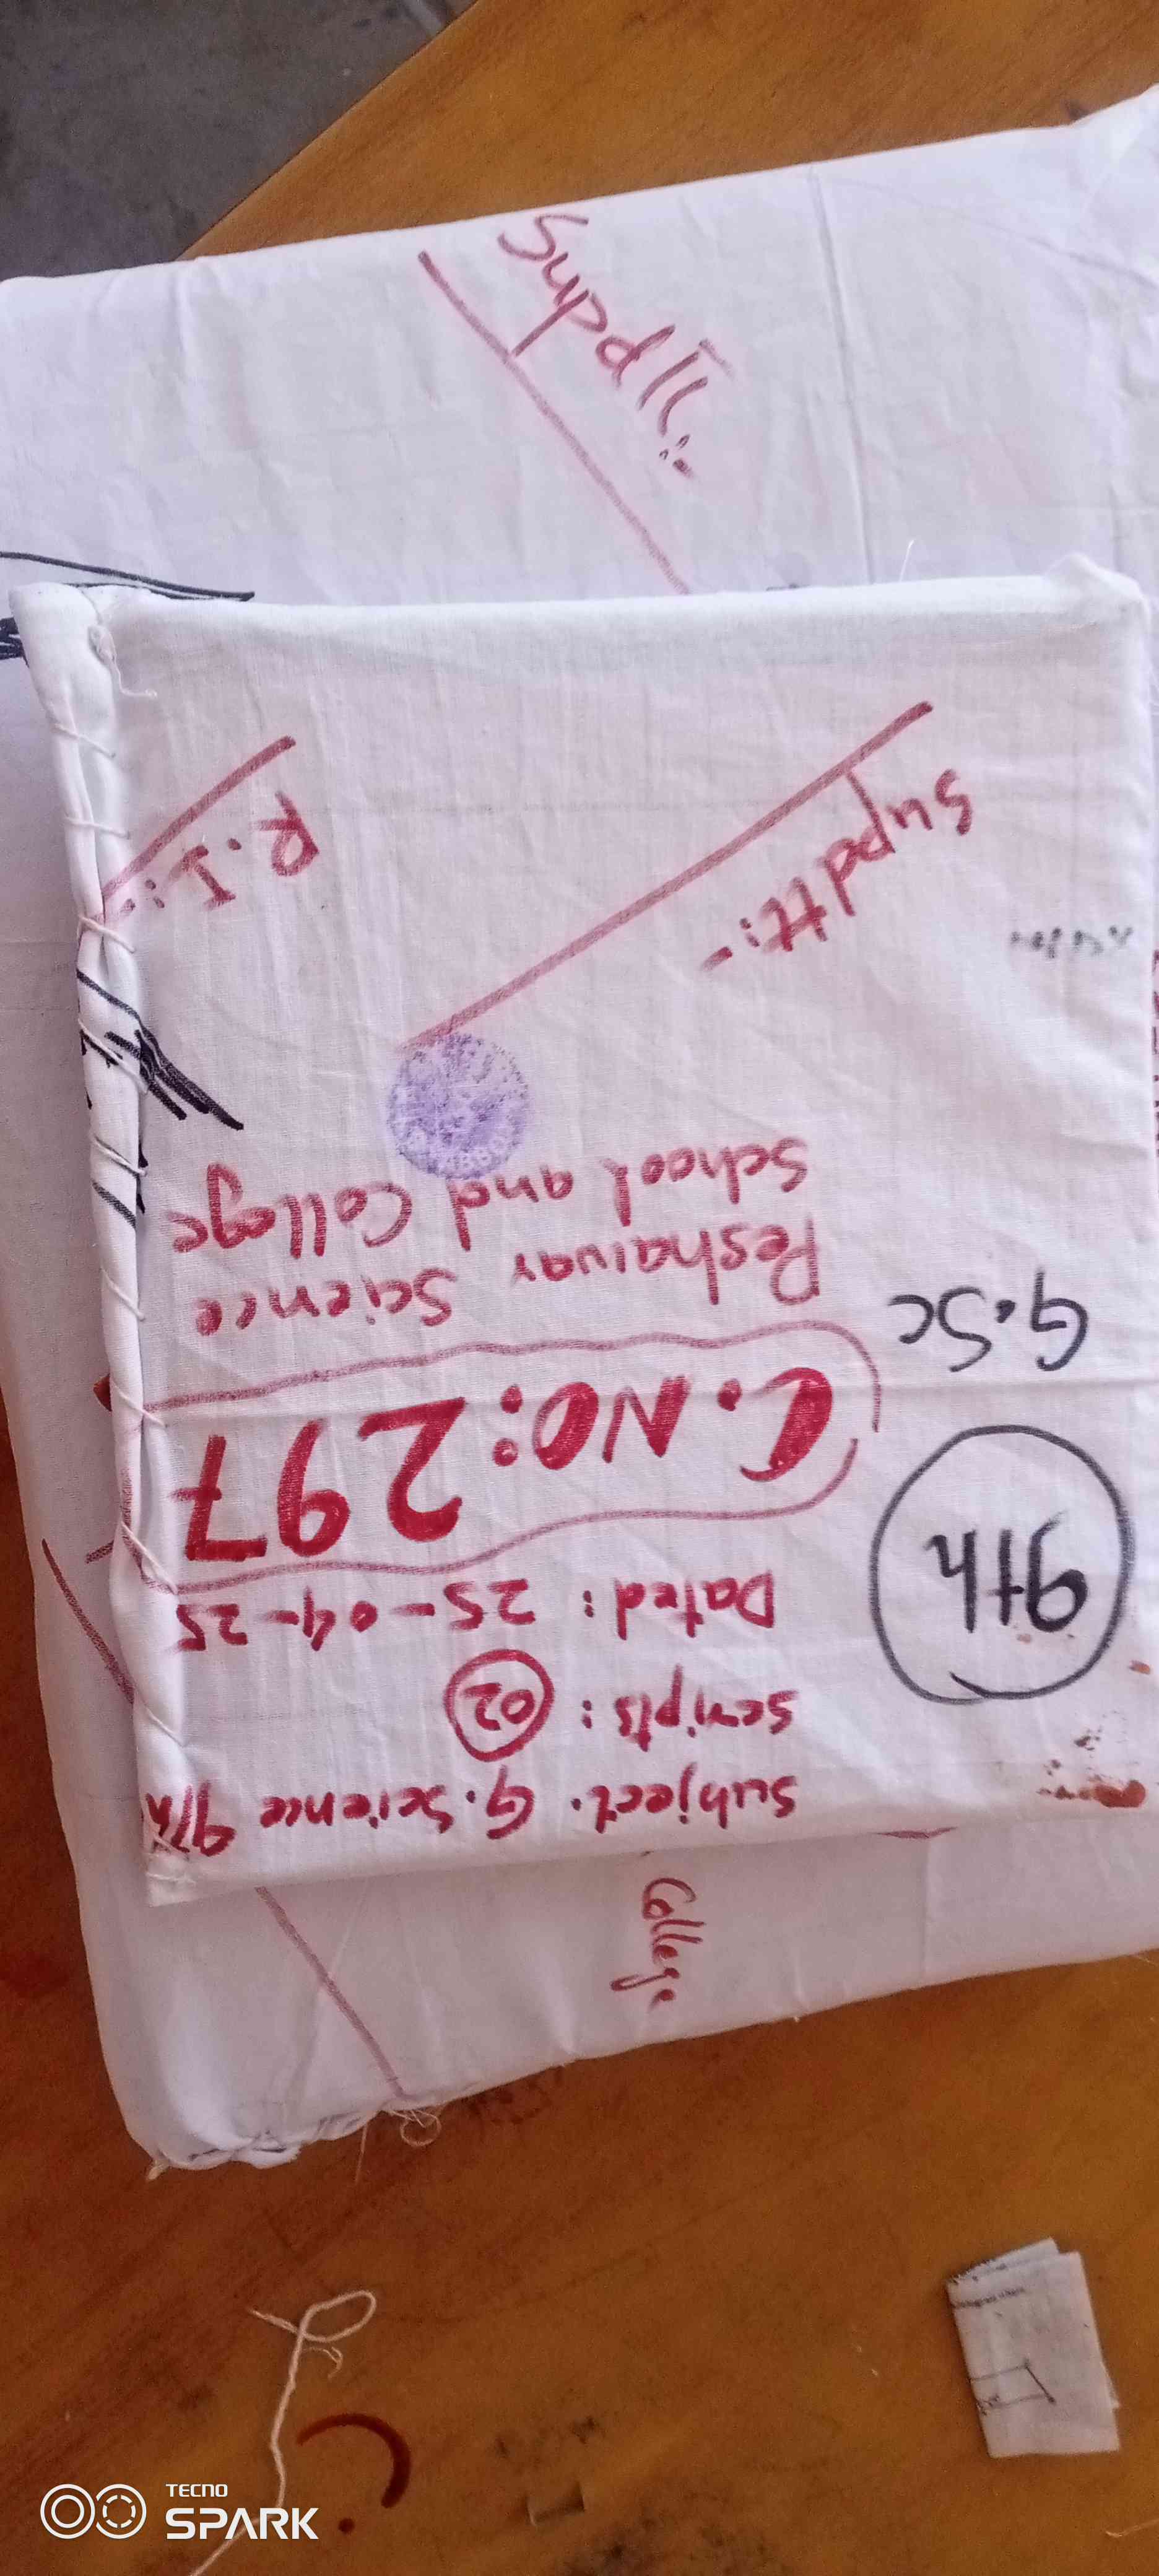 Subject. G. Science 9th
Scripts: 02
Dated: 25-04-25
C.NO: 297
Peshawar Science
School and College
Supdtt:-
R.I:-
9th
G.Sc
Supdtt:-
College
TECNO
SPARK